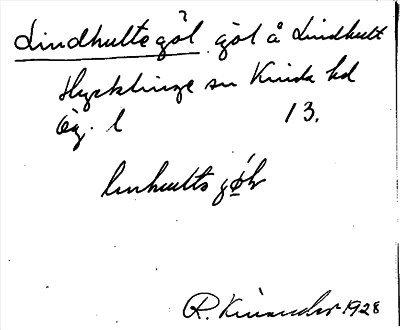 Lindhulte göl göl å Lindhult
Hycklinge sn Kinda hd
Ög. l 13.
linhults gøl
R. Kinander 1928